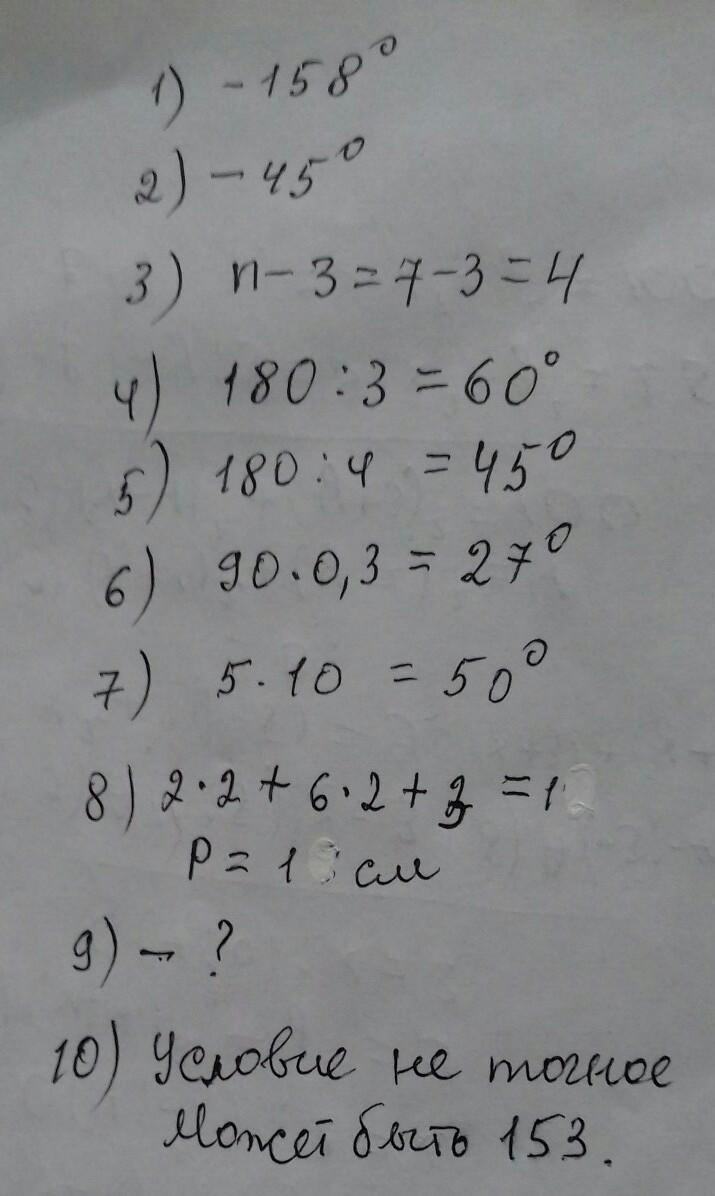 1) - 158°
2) - 45°
3) n - 3 = 7 - 3 = 4
4) 180 : 3 = 60°
5) 180 : 4 = 45°
6) 90 · 0,3 = 27°
7) 5 · 10 = 50°
8) 2 · 2 + 6 · 2 + = 1
P = 1 см
9) - ?
10) Условие не точное
Может быть 153.